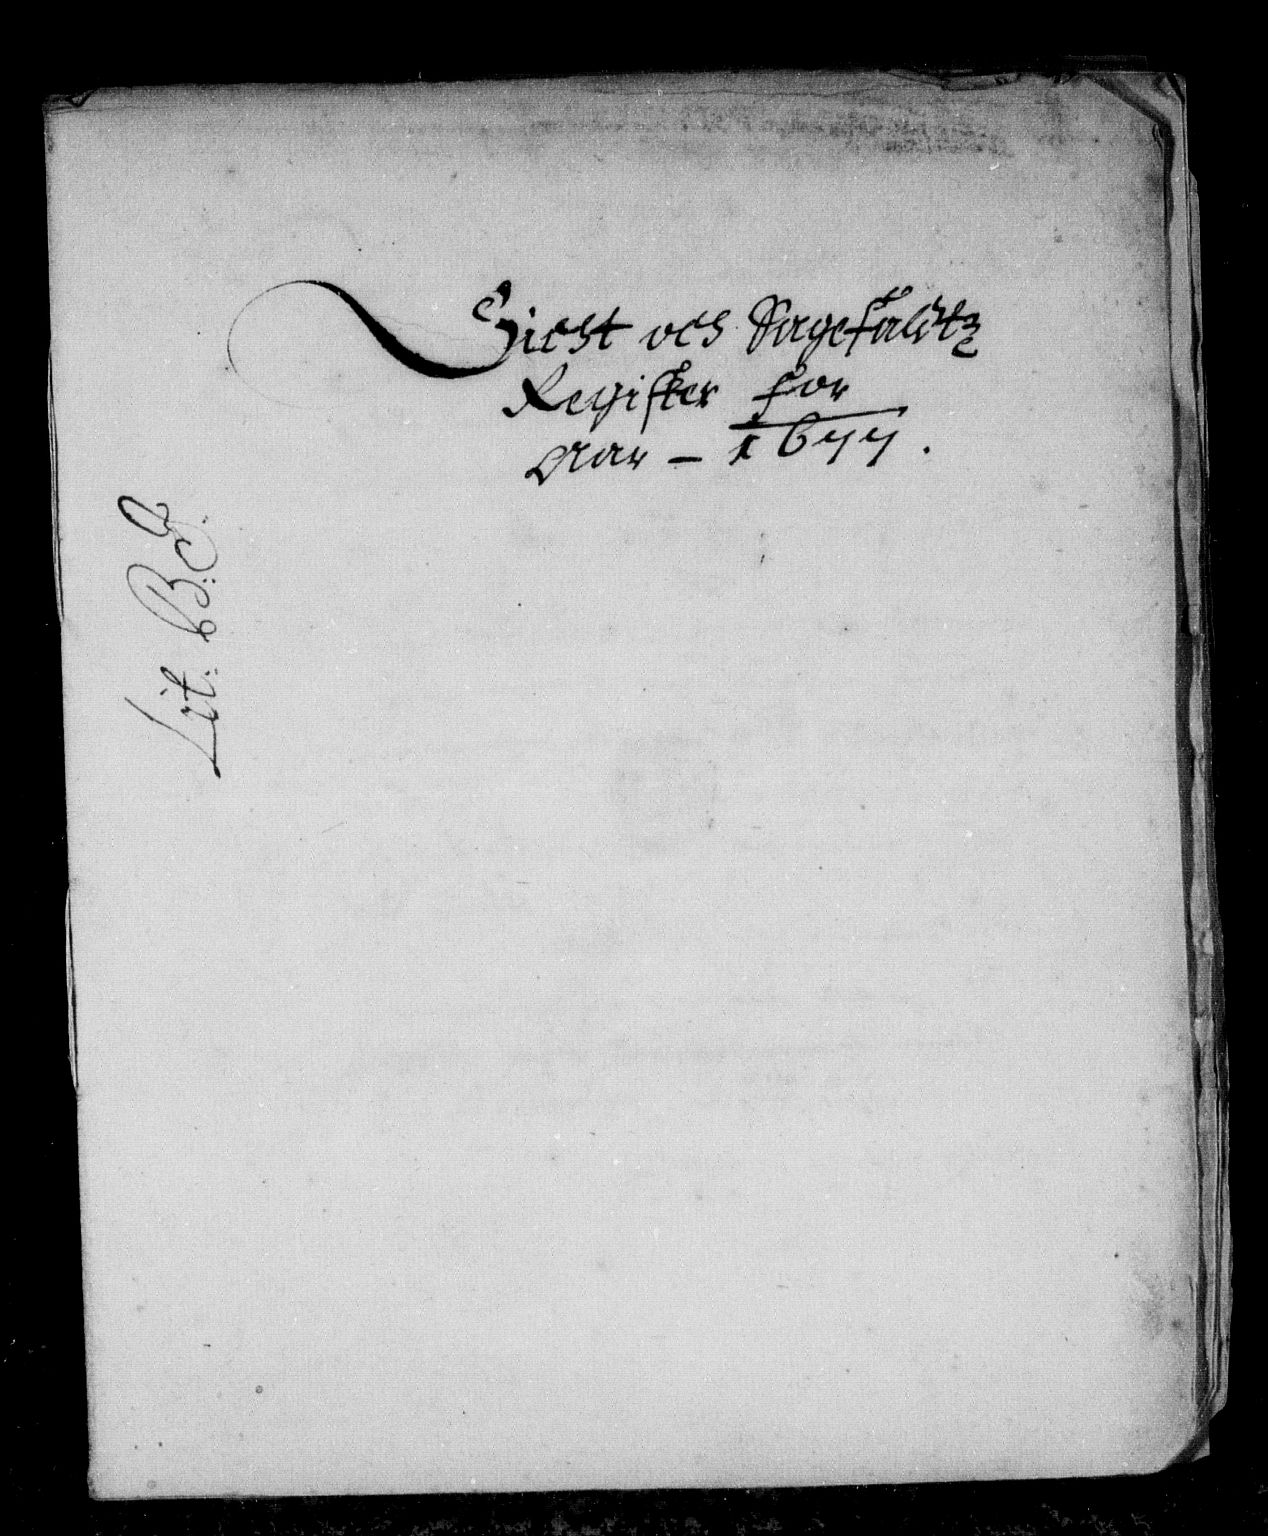 Sicht och Sagefaldtz
Register for
Aar – 1677.
Lit: B: